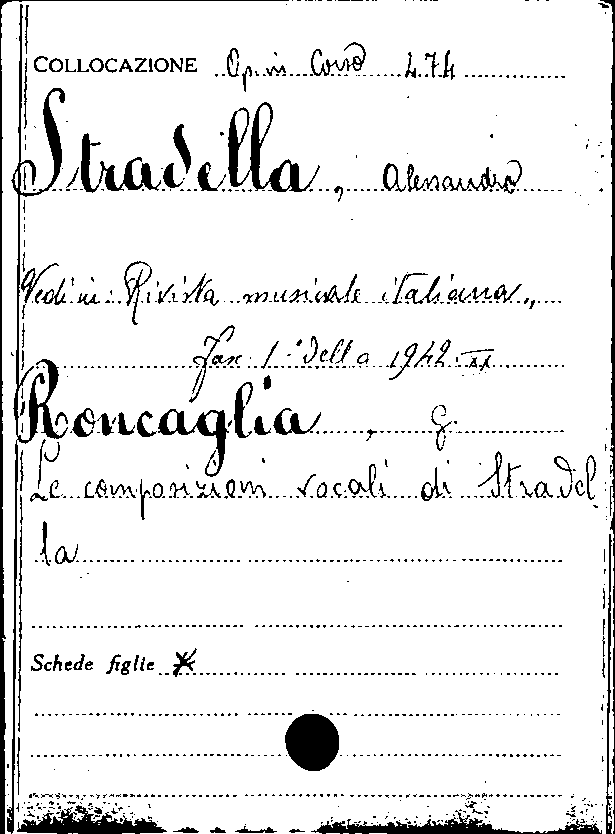 COLLOCAZIONE Op. in Corso 474
Stradella, Alessandro
Vedi in: Rivista musicale italiana,,
Fasc 1.° della 1942.XX
Roncaglia, G.
Le composizioni vocali di Stradel
la
Schede figlie